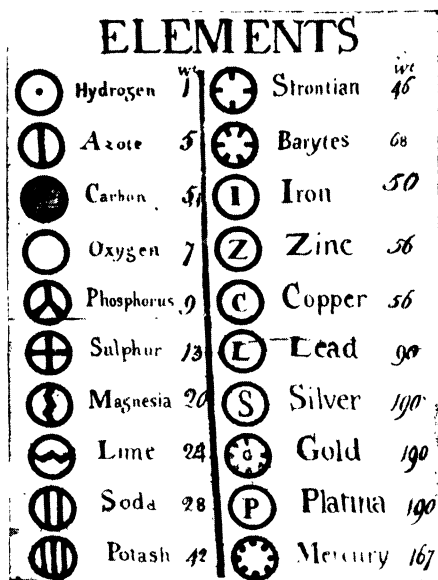 ELEMENTS
wt
Hydrogen 1
Azote 5
Carbon 5,4
Oxygen 7
Phosphorus 9
Sulphur 13
Magnesia 20
Lime 24
Soda 28
Potash 42
wt
Strontian 46
Barytes 68
I Iron 50
Z Zinc 56
C Copper 56
L Lead 90
S Silver 190
G Gold 190
P Platina 190
Mercury 167